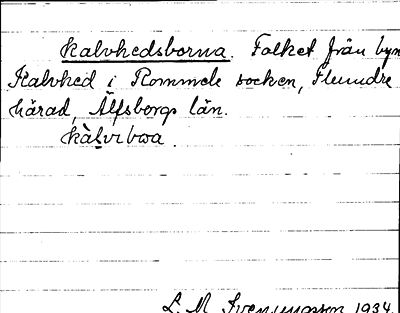 Kalvhedsborna. Folket från byn
Kalvhed i Rommele socken, Flundre
härad, Älfsborgs län.
kàlvıbωa.
L. M. Svensungsson 1934.